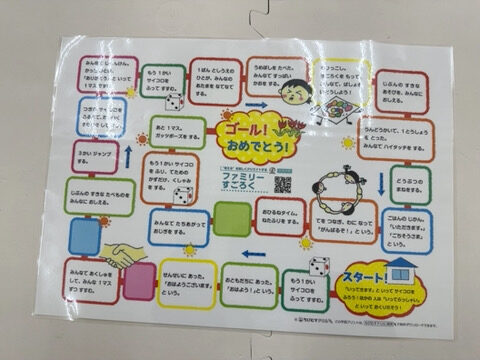 スタート！
「いってきます」といって サイコロを
ふろう！ほかの 人は「いってらっしゃい」
といって おくりだそう！
もう１かい
サイコロを
ふって すすむ。
おともだちに あった。
「おはよう！」という。
せんせいに あった。
「おはようございます」
と いう。
みんなで あくしゅを
して、みんな １マス
すすむ。
じぶんの すきな たべものを
みんなに おしえる。
３かい ジャンプ
する。
みんなで
「ありがとう」と いって
１マス
もう １かい
サイコロを
ふって すすむ。
１ばん としうえの
ひとが、みんなの
あたまを なでなで
する。
うめぼしを たべた。
みんなで すっぱい
かおを する。
じぶんの すきな
あそびを、みんなに
おしえる。
うんどうかいで、１とうしょう
を とった。
みんなで ハイタッチを する。
どうぶつの
まねをする。
ごはんの じかん。
「いただきます」
「ごちそうさま」
と いう。
てを つなぎ、わに なって
「がんばるぞ！」という。
おひるねタイム。
ねたふりを する。
みんなで たちあがって
おじぎを する。
もう１かい サイコロ
を ふり、でための
かずだけ、くしゃみ
を する。
あと １マス。
ガッツポーズを する。
ゴール！
おめでとう！
ファミリー
すごろく